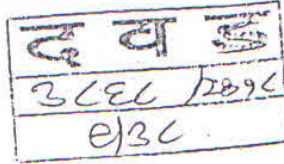 द व ड
३८६८ /२०१८
९/३८